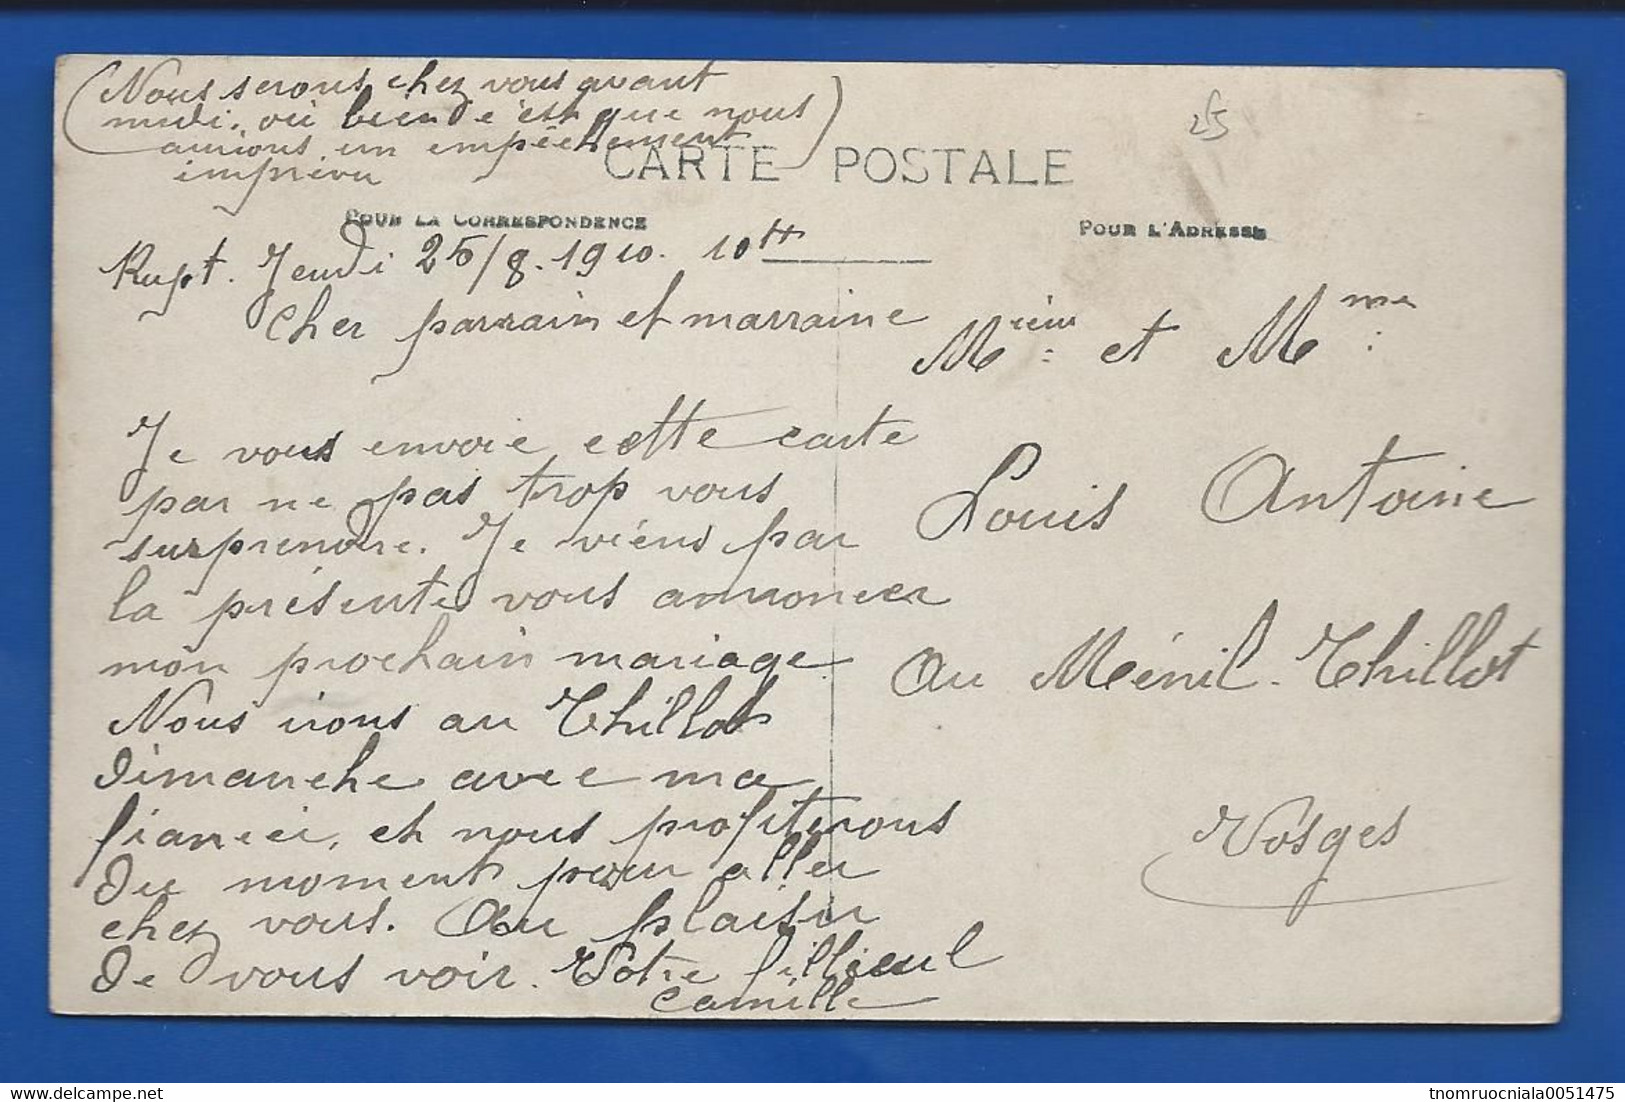 (Nous serons chez vous avant
midi, où bien de c'est que nous
aurions un empêchement
imprévu)
25
CARTE POSTALE
POUR LA CORRESPONDENCE
POUR L'ADRESSE
Rupt. Jeudi 25/8.1910. 10H
Cher parrain et marraine
Je vous envoie cette carte
par ne pas trop vous
surprendre. Je viéns par
la présente vous annoncer
mon prochain mariage
Nous irons au Thillot
Dimanche avec ma
fiancéi, et nous profiterons
du moment pour aller
chez vous. Au plaisir
de vous voir. Votre fillieul
Camille
Msieur et Mme
Louis Antoine
au Ménil-Thillot
Vosges
delcampe.net
tnomruocniala0051475